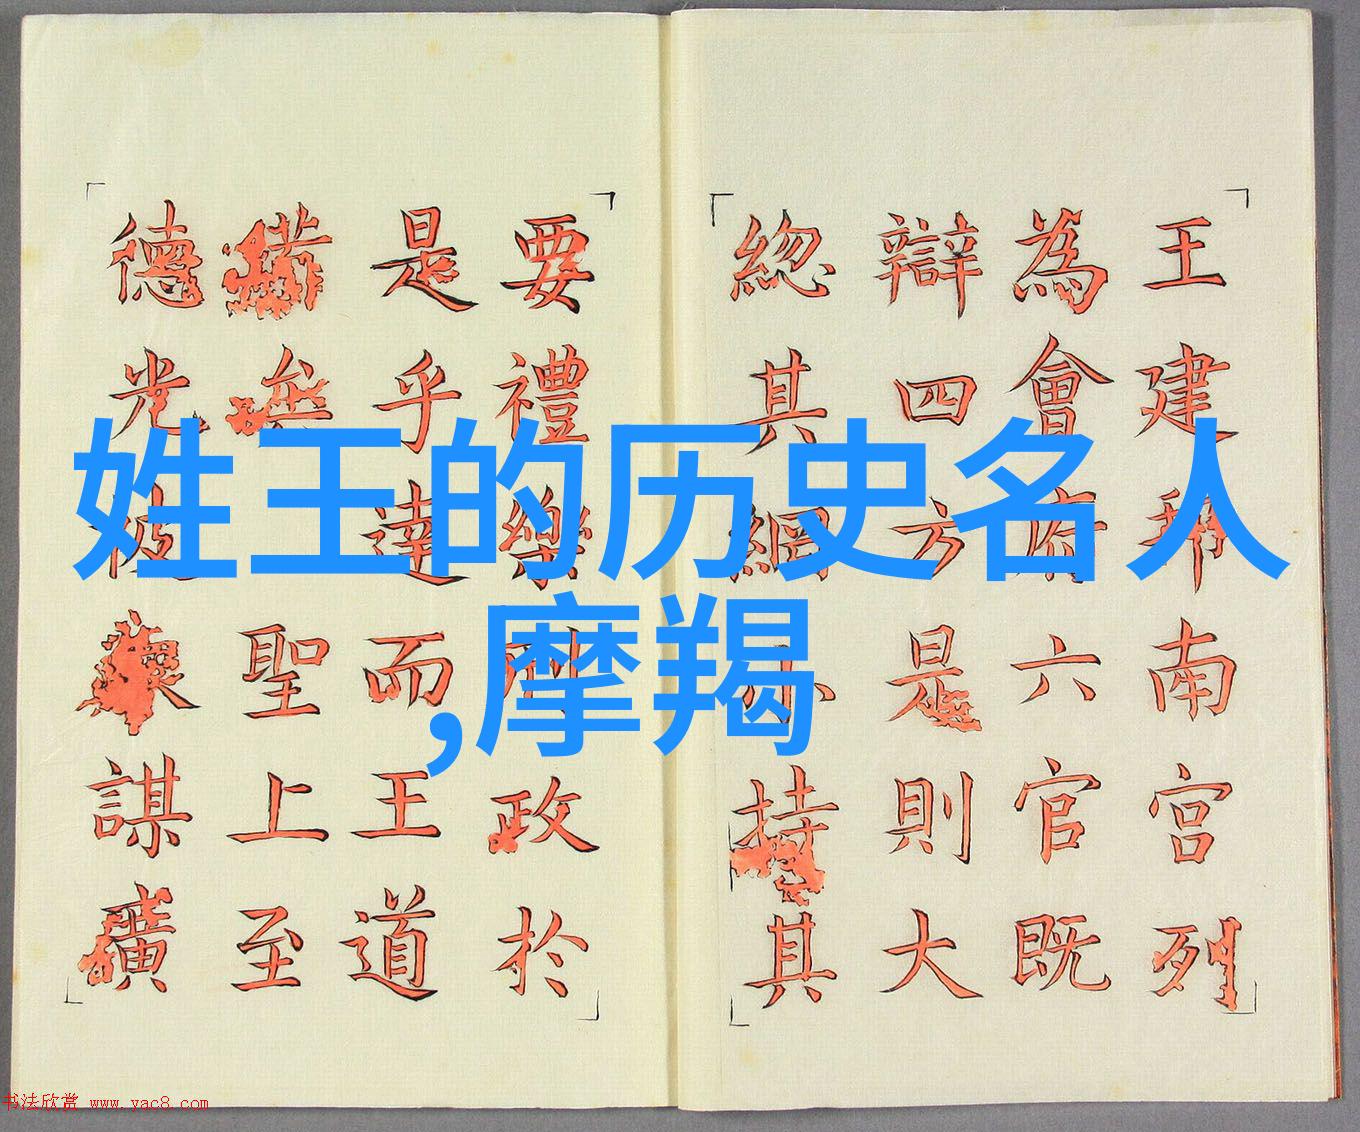 姓王的历史名人
,摩羯
王建邦南宫列
為會府六官既
辯四方是則大
緫其綱小持其
要禮樂刑政於
是乎達而王道
聖上至
德光被謀
书法欣赏 www.yac8.com